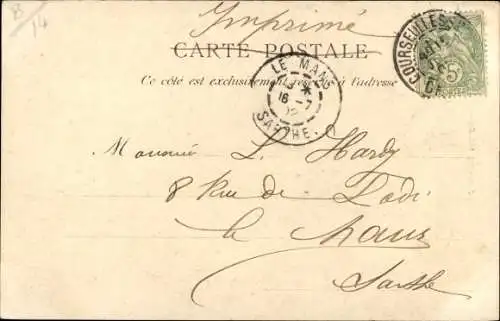 B
14
Imprimé
CARTE POSTALE
Ce côté est exclusivement réservé à l'adresse
COURSEULLES-S
LE MANS
16 -7
SARTHE
5
Monsieur L. Hardy
8 Rue de Lodi
le Mans
Sarthe